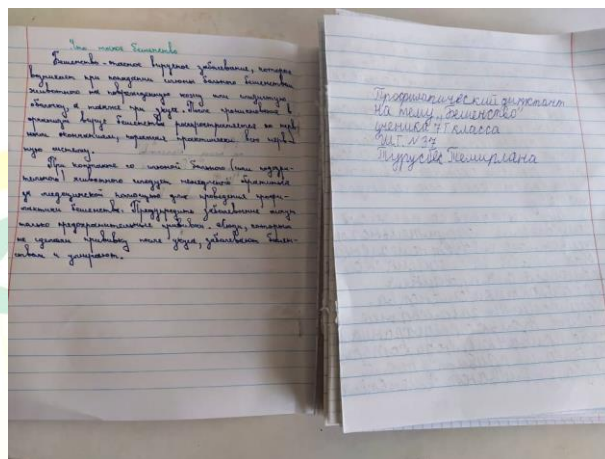 Что такое бешенство
Бешенство - тяжелое вирусное заболевание, которое
возникает при попадании слюны больного бешенством
животного на поврежденную кожу или слизистую
оболочку, а также при укусе. После проникновения в
организм вирус бешенства распространяется по нерв-
ным окончаниям, поражая практически всю нерв-
ную систему.
При контакте со слюной больного (или подозри-
тельного) животного следует немедленно обратиться
за медицинской помощью для проведения профи-
лактики бешенства. Предупредить заболевание могут
только предохранительные прививки. Люди, которым
не сделали прививку после укуса, заболевают бешен-
ством и умирают.
Профилактический диктант
на тему „бешенство"
ученика 7 Г класса
ШГ N 37
Турусбек Темирлана